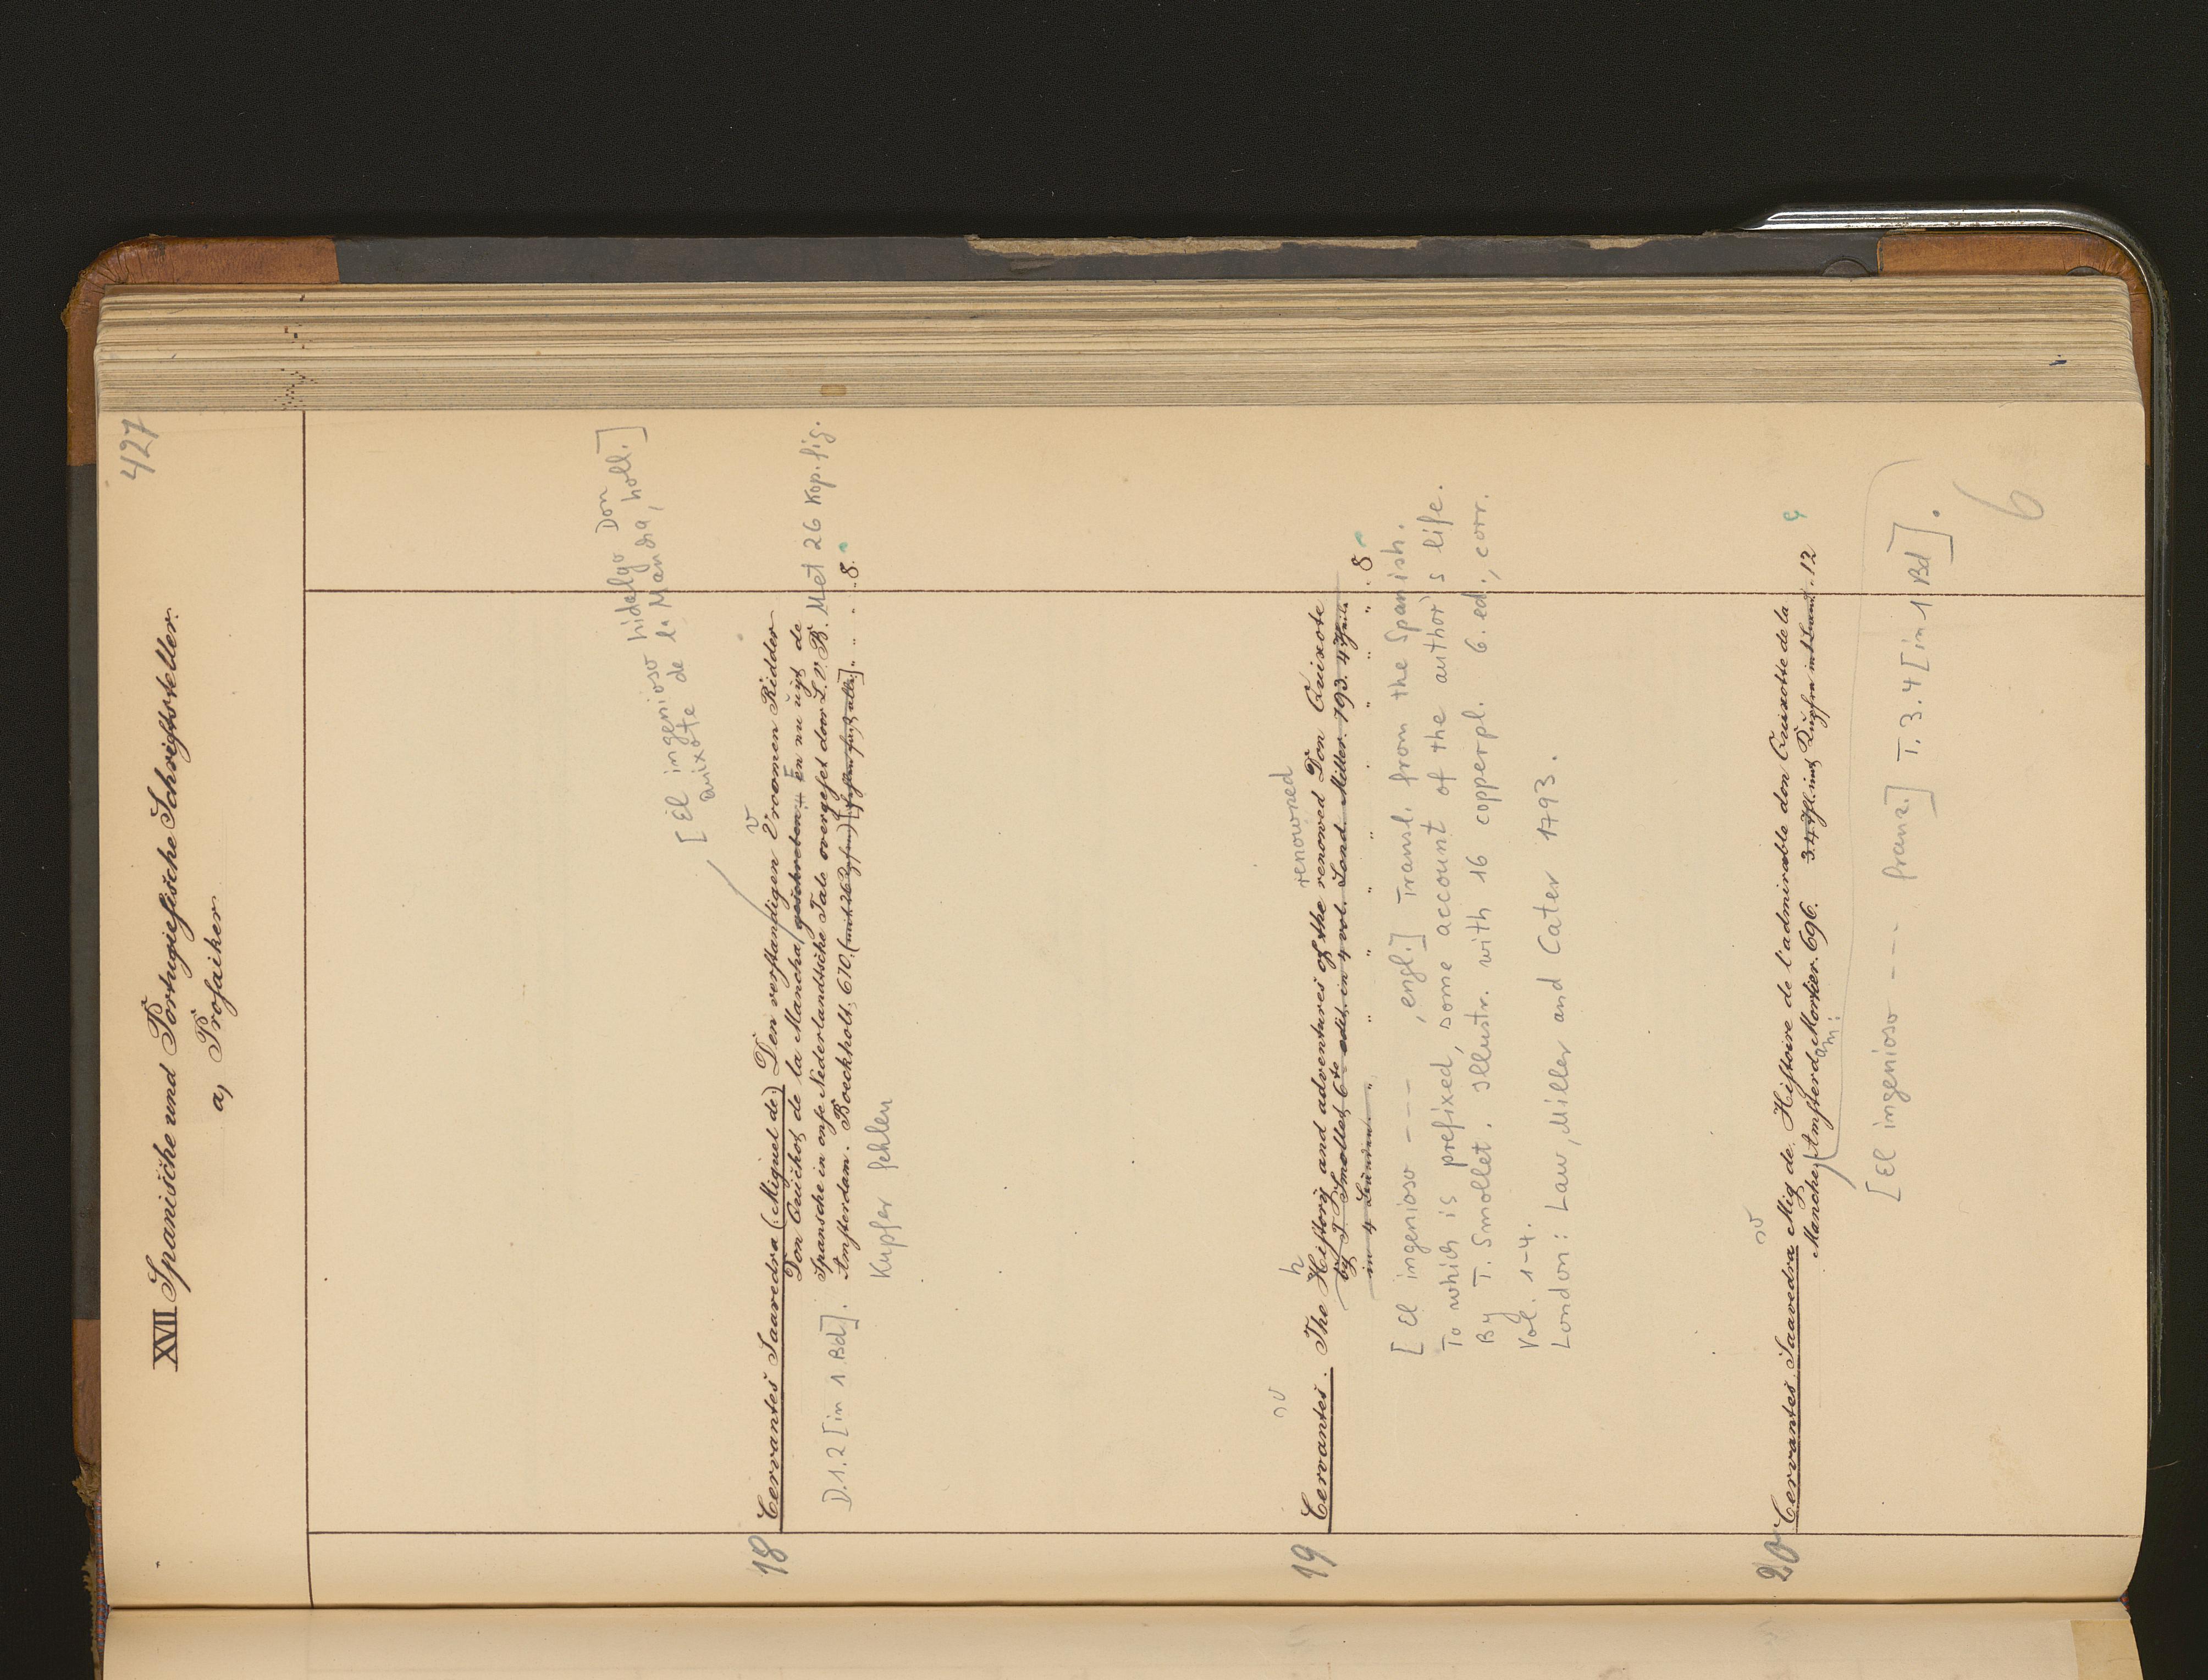 427
XVII Spanische und Portugiesische Schriftsteller.
a) Prosaiker.
[El ingenioso hidalgo Don
Quixote de la Mancha, holl.]
v
18 Cervantes Saavedra (Miguel de) Den verstandigen Vroomen Ridder
Don Quichot de la Mancha geschreben En nu uyt de
Spansche in onse Nederlandtsche Tale overgeset door L. V. B. Met 26 Kop. fig.
D.1.2 [in 1 Bd]. Amsterdam. Boeckholt, 670. (mit 26 Kpfrn) 8.
Kupfer fehlen
h renowned
19 Cervantes. The History and adventures of the renowed Don Quixote
by T. Smollet 6te edit. in 4 vol. Lond. Miller. 793. 4 Theile
in 4 Bänden. 8.
[El ingenioso ----, engl.] Transl. from the Spanish.
To which is prefixed, some account of the author's life.
By T. Smollet. Illustr. with 16 copperpl. 6. ed., corr.
Vol. 1-4.
London: Law, Miller and Cater 1793.
20 Cervantes Saavedra Mig de. Histoire de l'admirable don Quixotte de la
Manche, Amsterd. Mortier. 696. 3.4 Thl. mit Kupfern in 1 Band. 12
am:
[El ingenioso ---- franz.] T. 3.4 [in 1 Bd].
6